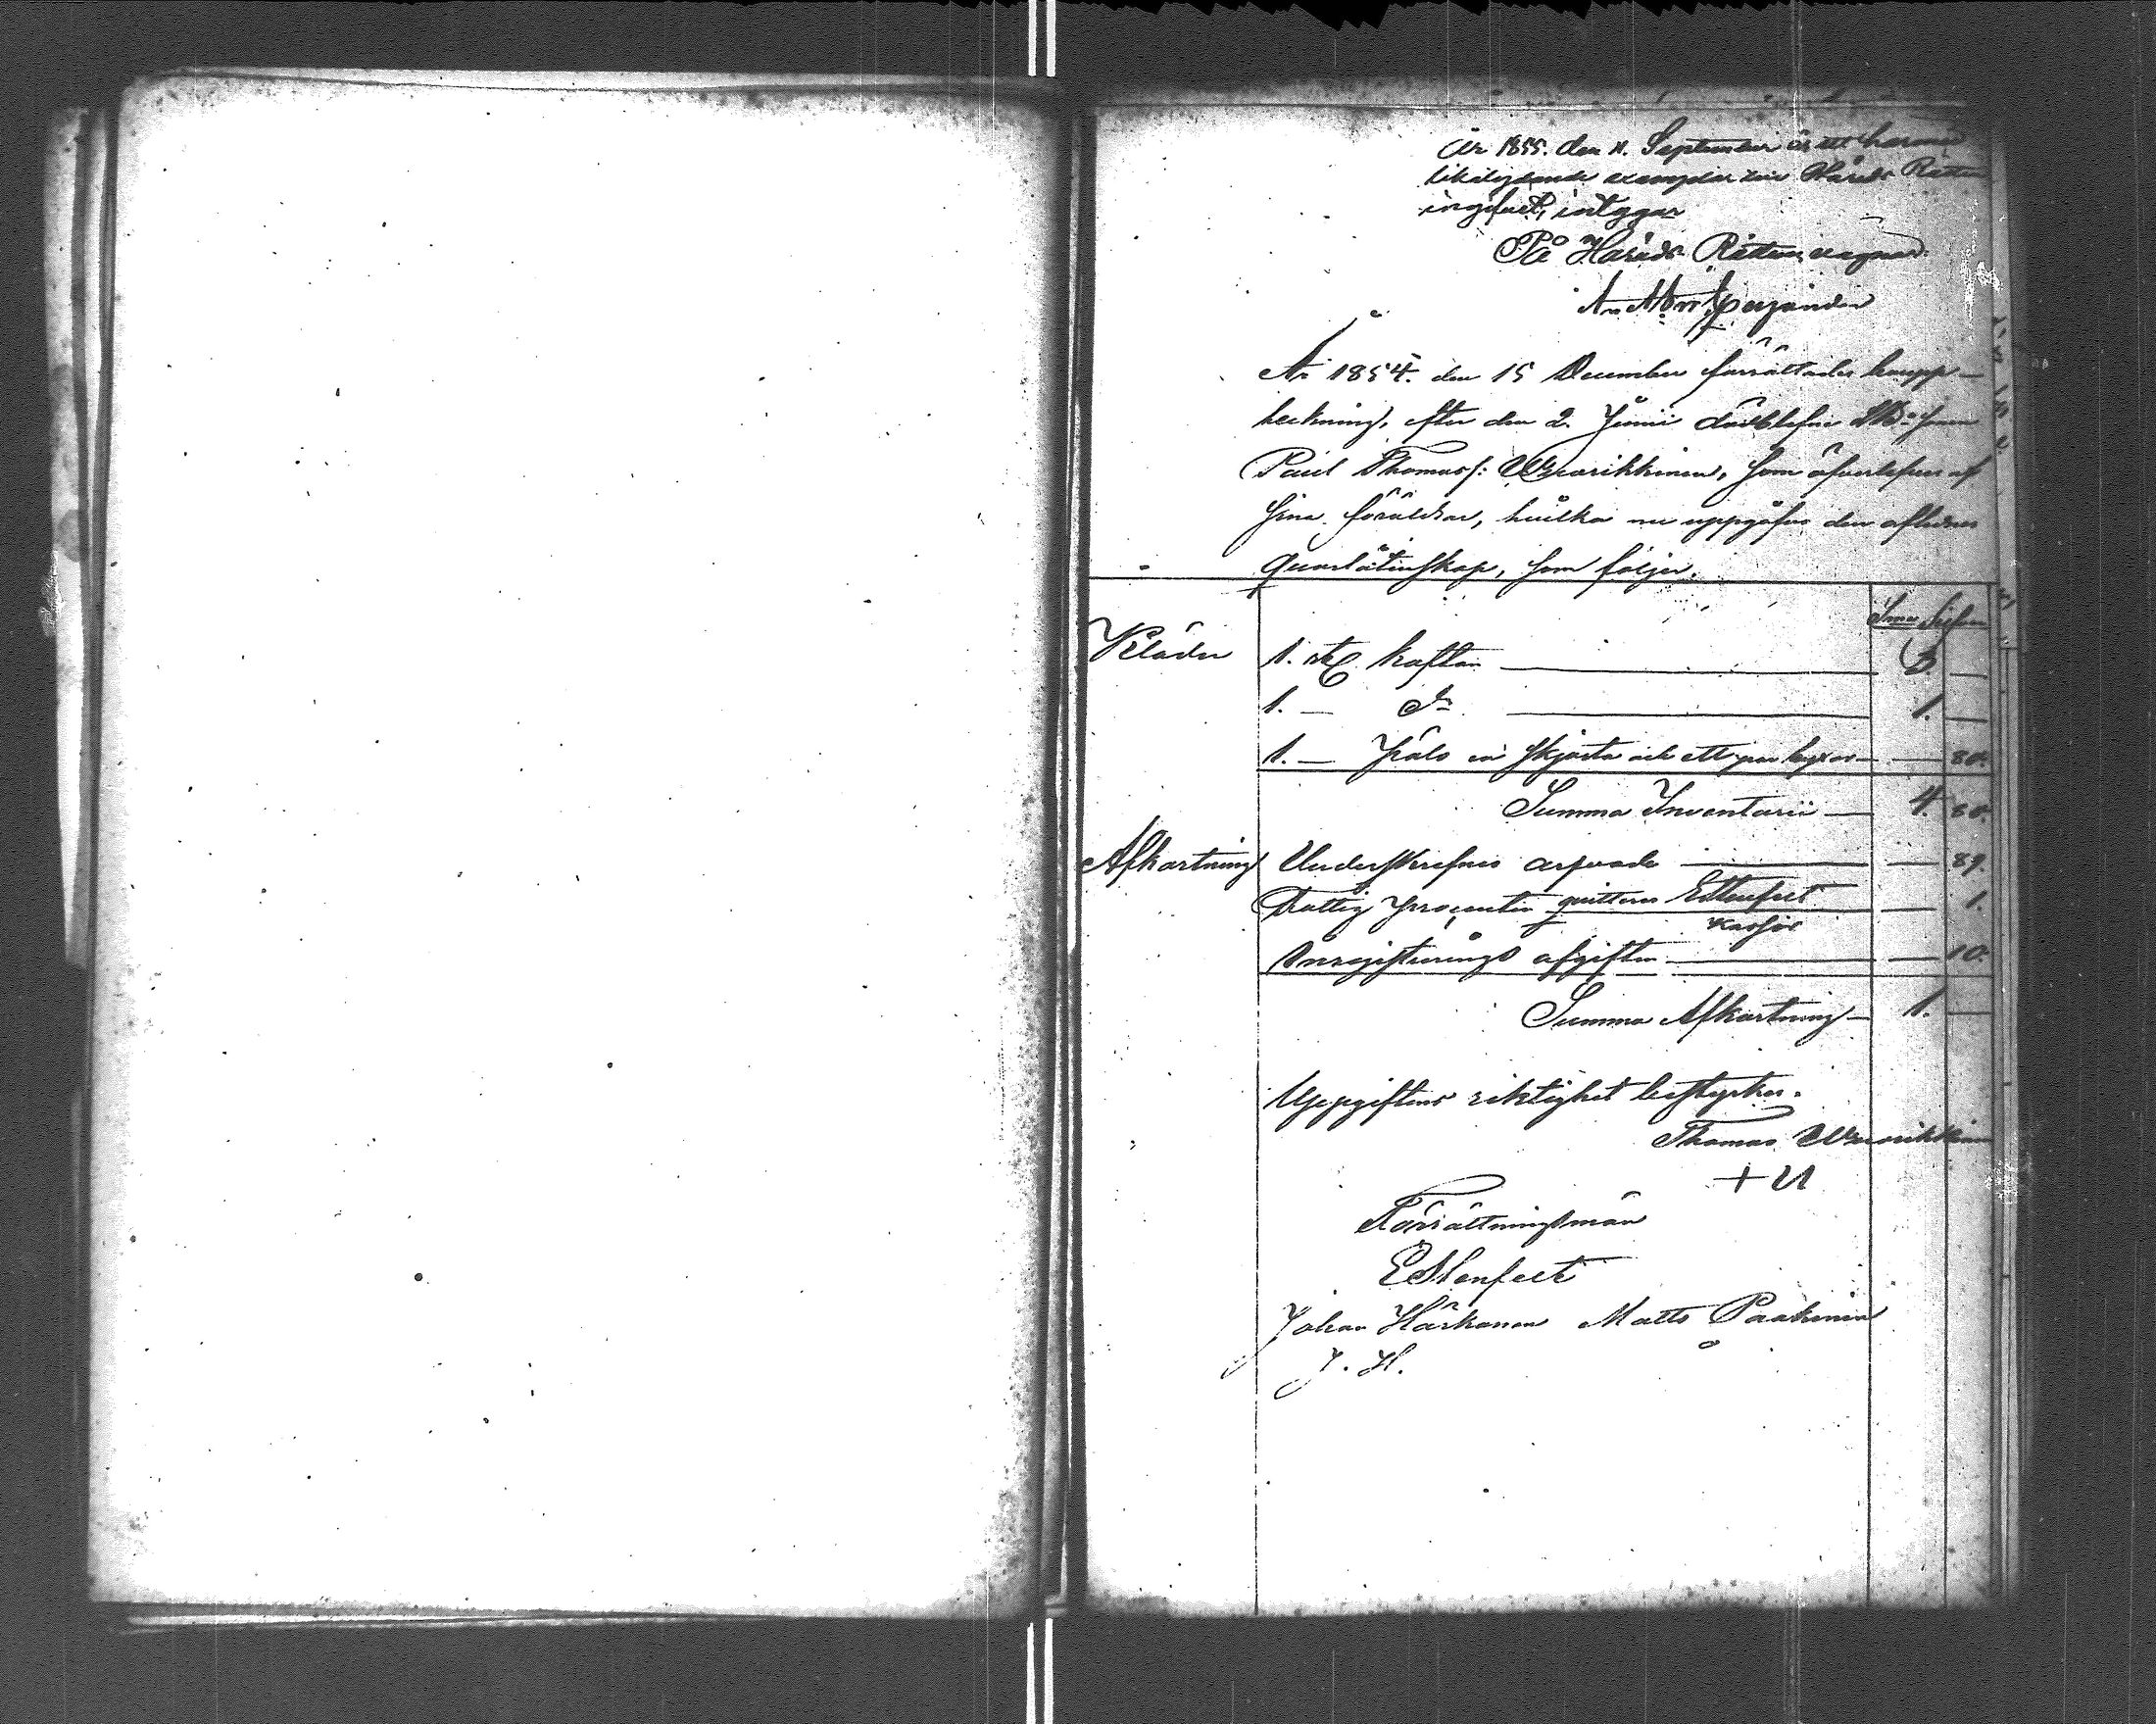 År 1855. den 11. September är ett härmed
likalydande exemplar till Härads Rätten
ingifvet, intygar
På Härads Rättens vägnar
År 1854. den 15 December förrättades boupp-
teckning, efter den 2. Junii dödblefne
Paul Thomass: Warikkinen, som öfverlefves af
sina föräldrar, hvilka nu uppgåfvo den aflidnes
qvarlåtenskap, som följer.
Silfver
Kläder 1. st kaftan — 3. —
1. — do — 1. —
1. — Päls en skjorta och ett par byxor — — 80.
Summa Inventarii — 4. 80.
Afkortning Underskrefnes arfvode — — 89.
Fattig procenten qvitteras Ehlenfelt — 1.
Kassör
Inregistrerings afgiften — — 10.
Summa Afkortning — 1. —
Uppgiftens riktighet bestyrkes.
Thomas Warikkinen
+ U
Förrättningsmän
Ehlenfelt
Johan Härkönen Matts Paakinen
J. H.